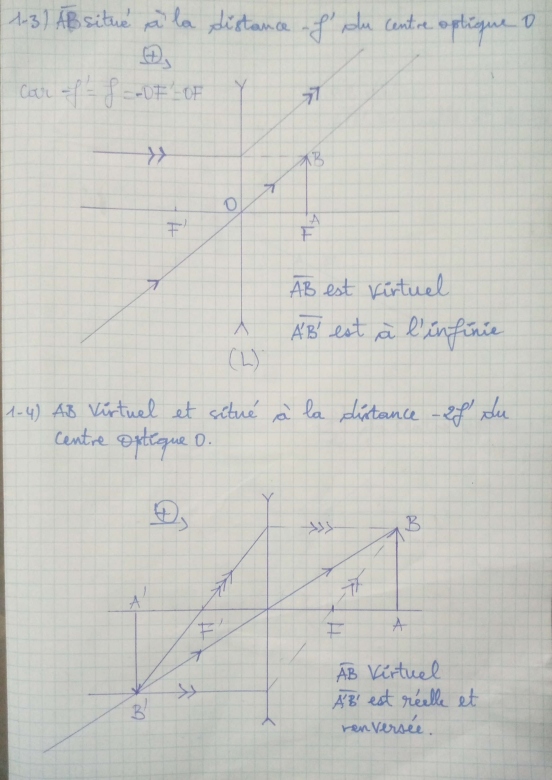 1-3) AB situé à la distance -f' du centre optique O
+
car -f' = f = -OF' = OF
B
O
F'
F A
AB est Virtuel
A'B' est à l'infinie
(L)
1-4) AB Virtuel et situé à la distance -2f' du
centre optique O.
+
B
A'
F'
F
A
B'
AB Virtuel
A'B' est réelle et
renversée.